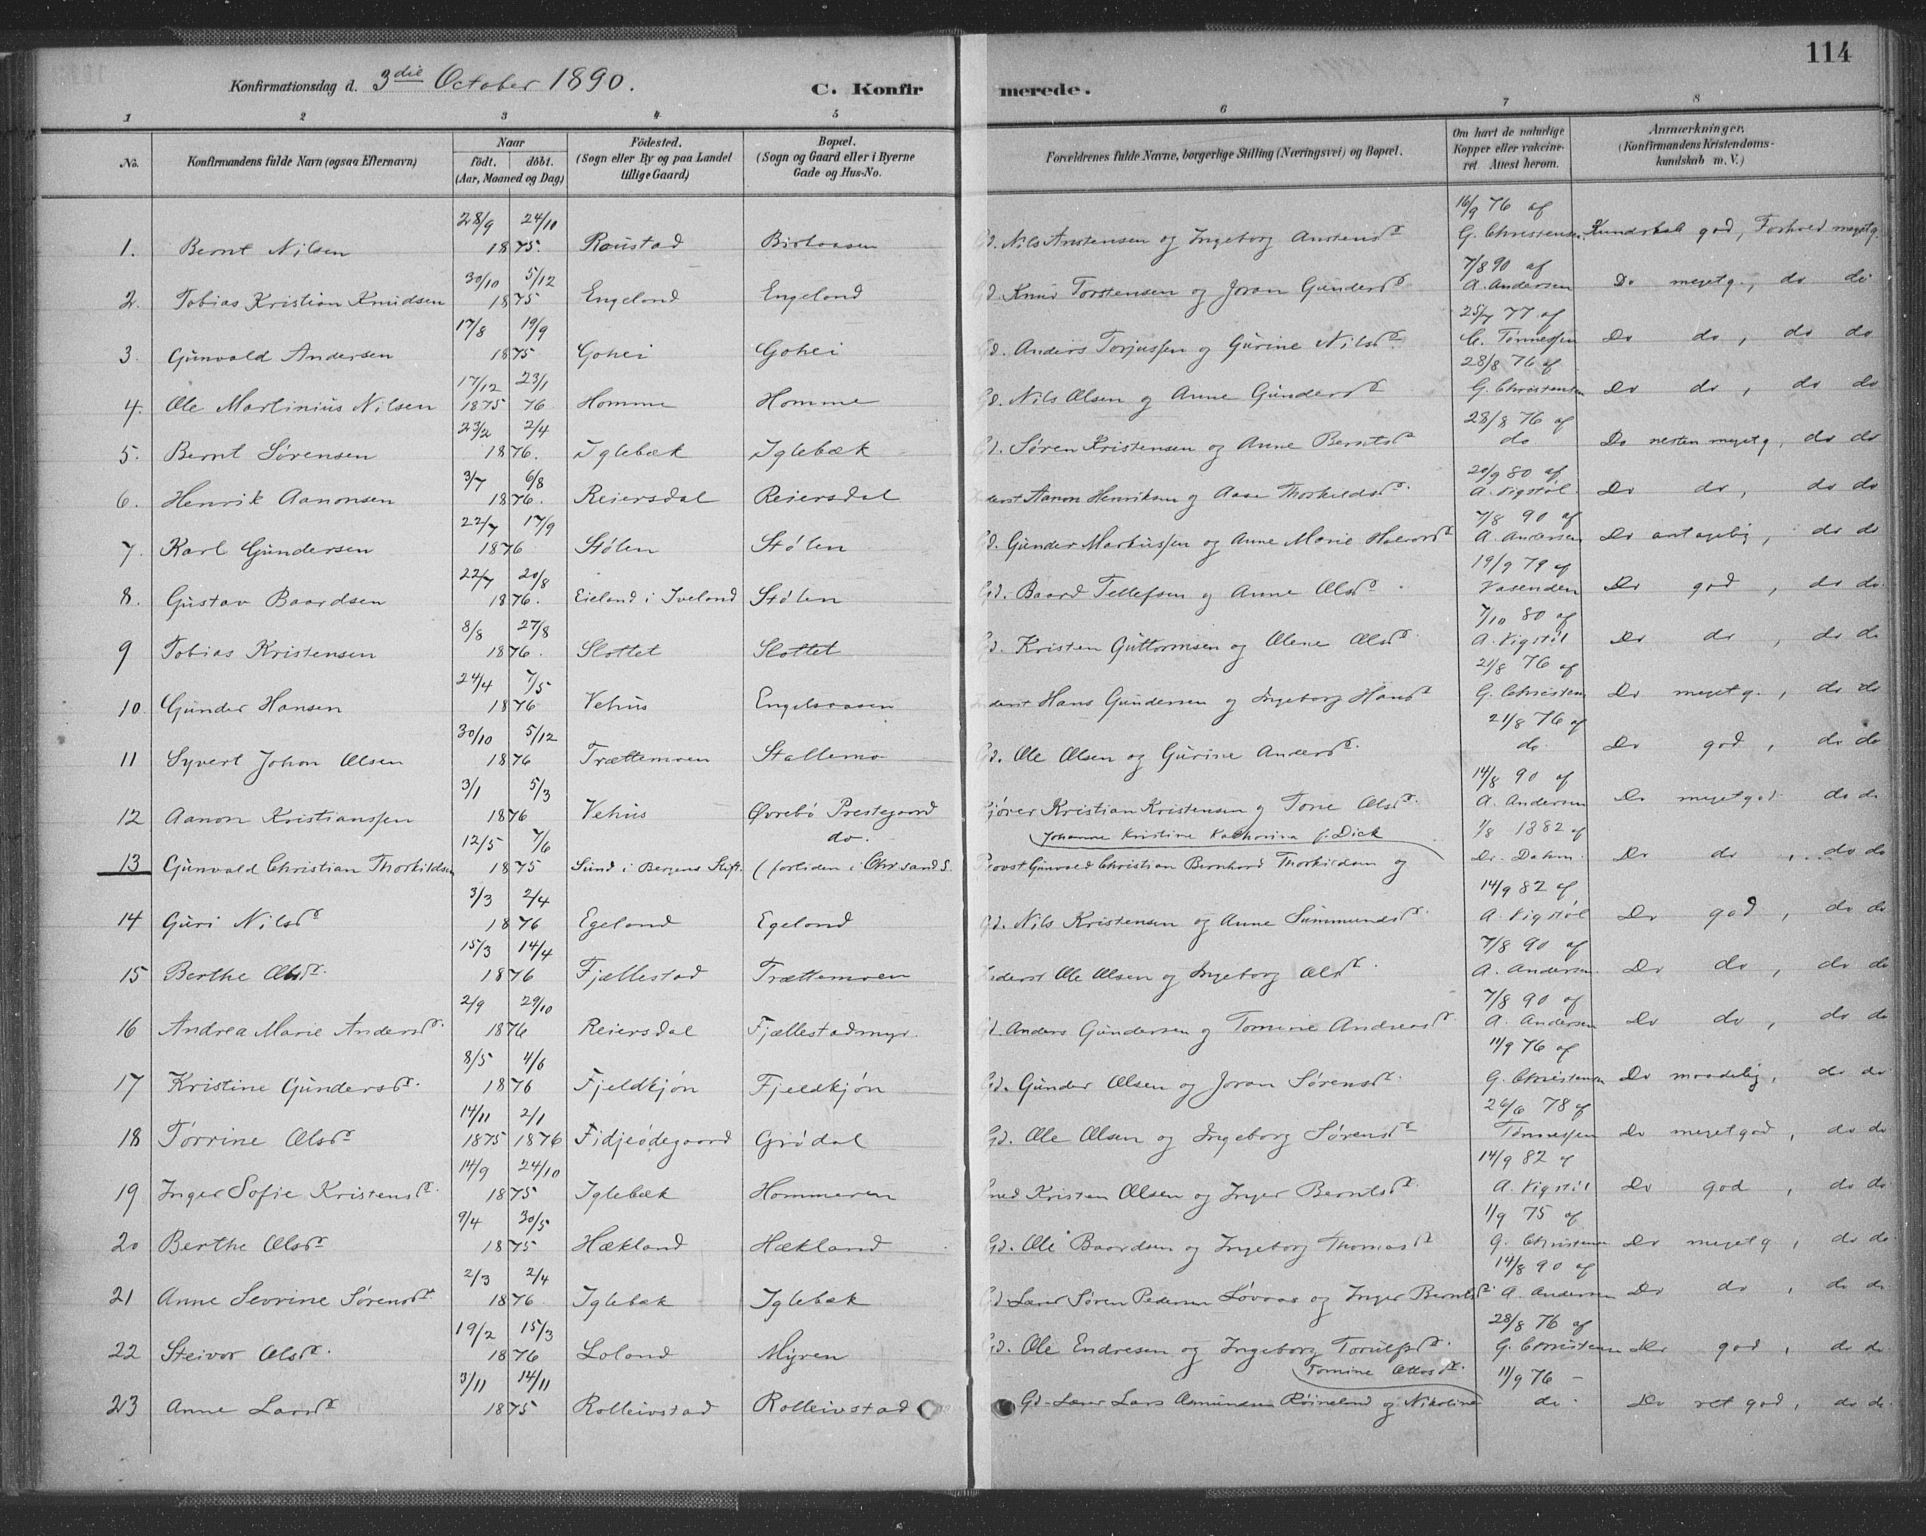 114
Konfirmationsdag d. 3die October 1890. C. Konfirmerede.
1 2 3 4 5 6 7 8
No. Konfirmandens fulde Navn (ogsaa Efternavn) Naar födt. döbt. (Aar, Maaned og Dag) Födested. (Sogn eller By og paa Landet tillige Gaard) Bopæl. (Sogn og Gaard eller i Byerne Gade og Hus-No. Forældrenes fulde Navne, borgerlige Stilling (Næringsvei) og Bopæl. Om havt de naturlige Kopper eller vakcineret. Attest herom. Anmærkninger. (Konfirmandens Kristendomskundskab m. V.)
1. Bernt Nilsen 28/9 24/10 1875 Roustad Birkaasen Gd. Nils Anstensen og Ingeborg Anstensdr 16/9 76 af G. Christensen Kundskab god, Forhold megetg.
2. Tobias Kristian Knudsen 30/10 5/12 1875 Engeland Engeland Gd. Knud Torstensen og Joran Gundersdr 7/8 90 af A. Andersen Do megetg., do do
3. Gunvald Andersen 17/8 19/9 1875 Gohei Gohei Gd. Anders Torjussen og Gurine Nilsdr 25/7 77 af C. Tønnessen Do do, do do
4. Ole Martinius Nilsen 17/12 23/1 1875 76 Homme Homme Gd. Nils Olsen og Anne Gundersdr 28/8 76 af G. Christensen Do do, do do
5. Bernt Sørensen 23/2 2/4 1876. Iglebæk Iglebæk Gd. Søren Kristensen og Anne Berntsdr 28/8 76 af do Do nesten megetg, do do
6. Henrik Aanonsen 3/7 6/8 1876. Reiersdal Reiersdal Inderst Aanon Henriksen og Aase Thorkildsdr 20/9 80 af A. Vigstøl Do do, do do
7. Karl Gundersen 22/7 17/9 1876 Stølen Stølen Gd. Gunder Markussen og Anne Marie Halvorsdr 7/8 90 af A. Andersen Do antagelig, do do
8. Gustav Baardsen 22/7 20/8 1876. Eieland i Iveland Stølen Gd. Baard Tellefsen og Anne Olsdr 19/9 79 af Vasenden Do god, do do
9 Tobias Kristensen 8/8 27/8 1876. Slottet Slottet Gd. Kristen Guttormsen og Olene Olsdr 7/10 80 af A. Vigstøl Do do, do do
10. Gunder Hansen 24/4 7/5 1876 Vehus Engelsaasen Inderst Hans Gundersen og Ingeborg Hansdr 21/8 76 af G. Christens Do megetg., do do
11 Syvert Johan Olsen 30/10 5/12 1876 Trættemoen Stallemo Gd. Ole Olsen og Gurine Andersdr 21/8 76 af do Do god, do do
12 Aanon Kristianssen 3/1 5/3 1876 Vehus Øvrebö Prestegaard Kristian Kristensen og Tone Olsdr. 14/8 90 af A. Andersen Do megetgod do do
13 Gunvald Christian Thorkildsen 12/5 7/6 1875 Sund i Bergens Stift. do. (fortiden i Chrsands. Provst Gunvald Christian Bernhard Thorkildsen og Johanne Kristine Kathorina f. Dick 1/8 1882 af Dr. Dahm. Do do, do do
14 Guri Nilsdr 3/3 2/4 1876 Egeland Egeland Gd. Nils Kristensen og Anne Summundsdr 14/9 82 af A. Vigstøl Do god, do do
15 Berthe Olsdr. 15/3 14/4 1876 Fjællestad Trættemoen Inderst Ole Olsen og Ingeborg Olsdr 7/8 90 af A. Andersen Do do, do do
16 Andrea Marie Andersdr. 2/9 29/10 1876 Reiersdal Fjællestadmyr. Gd. Anders Gundersen og Tomine Andreasdr 7/8 90 af A. Andersen Do do, do do
17 Kristine Gundersdr. 8/5 4/6 1876 Fjeldkjøn Fjeldkjøn Gd. Gunder Olsen og Joran Sørensdr 11/9 76 af G. Christensen Do maadelig, do do
18 Torrine Olsdr 14/11 2/1 1875 1876 Fidjeødegaard Grödal Gd. Ole Olsen og Ingeborg Sørensdr 26/6 78 af Tønnessen Do megetgod, do do
19 Inger Sofie Kristensdr. 14/9 24/10 1875 Iglebæk Hommeren Smed Kristen Olsen og Inger Berntsdr. 14/9 82 af A. Vigstøl Do god, do do
20 Berthe Olsdr 9/4 30/5 1875 Hækland Hækland Gd. Ole Baardsen og Ingeborg Thomasdr 1/9 75 af G. Christensen Do megetg, do do
21 Anne Sevrine Sørensdr 2/3 2/4 1876 Iglebæk Iglebæk Gd-Lærer Søren Pedersen Løvaas og Inger Berntsdr. 14/8 90 af A. Andersen Do do, do do
22 Steivor Olsdr. 19/2 15/3 1876 Loland Myren Gd. Ole Endresen og Ingeborg Torulfsdr. 28/8 76 af G. Christensen Do god, do do
23 Anne Larsdr 3/11 14/11 1875 Rolleivstad Rolleivstad Gd-Lærer Lars Asmundsen Røineland og Nikoline Tomine Ottosdr. 11/9 76 - do. Do ret god, do do.